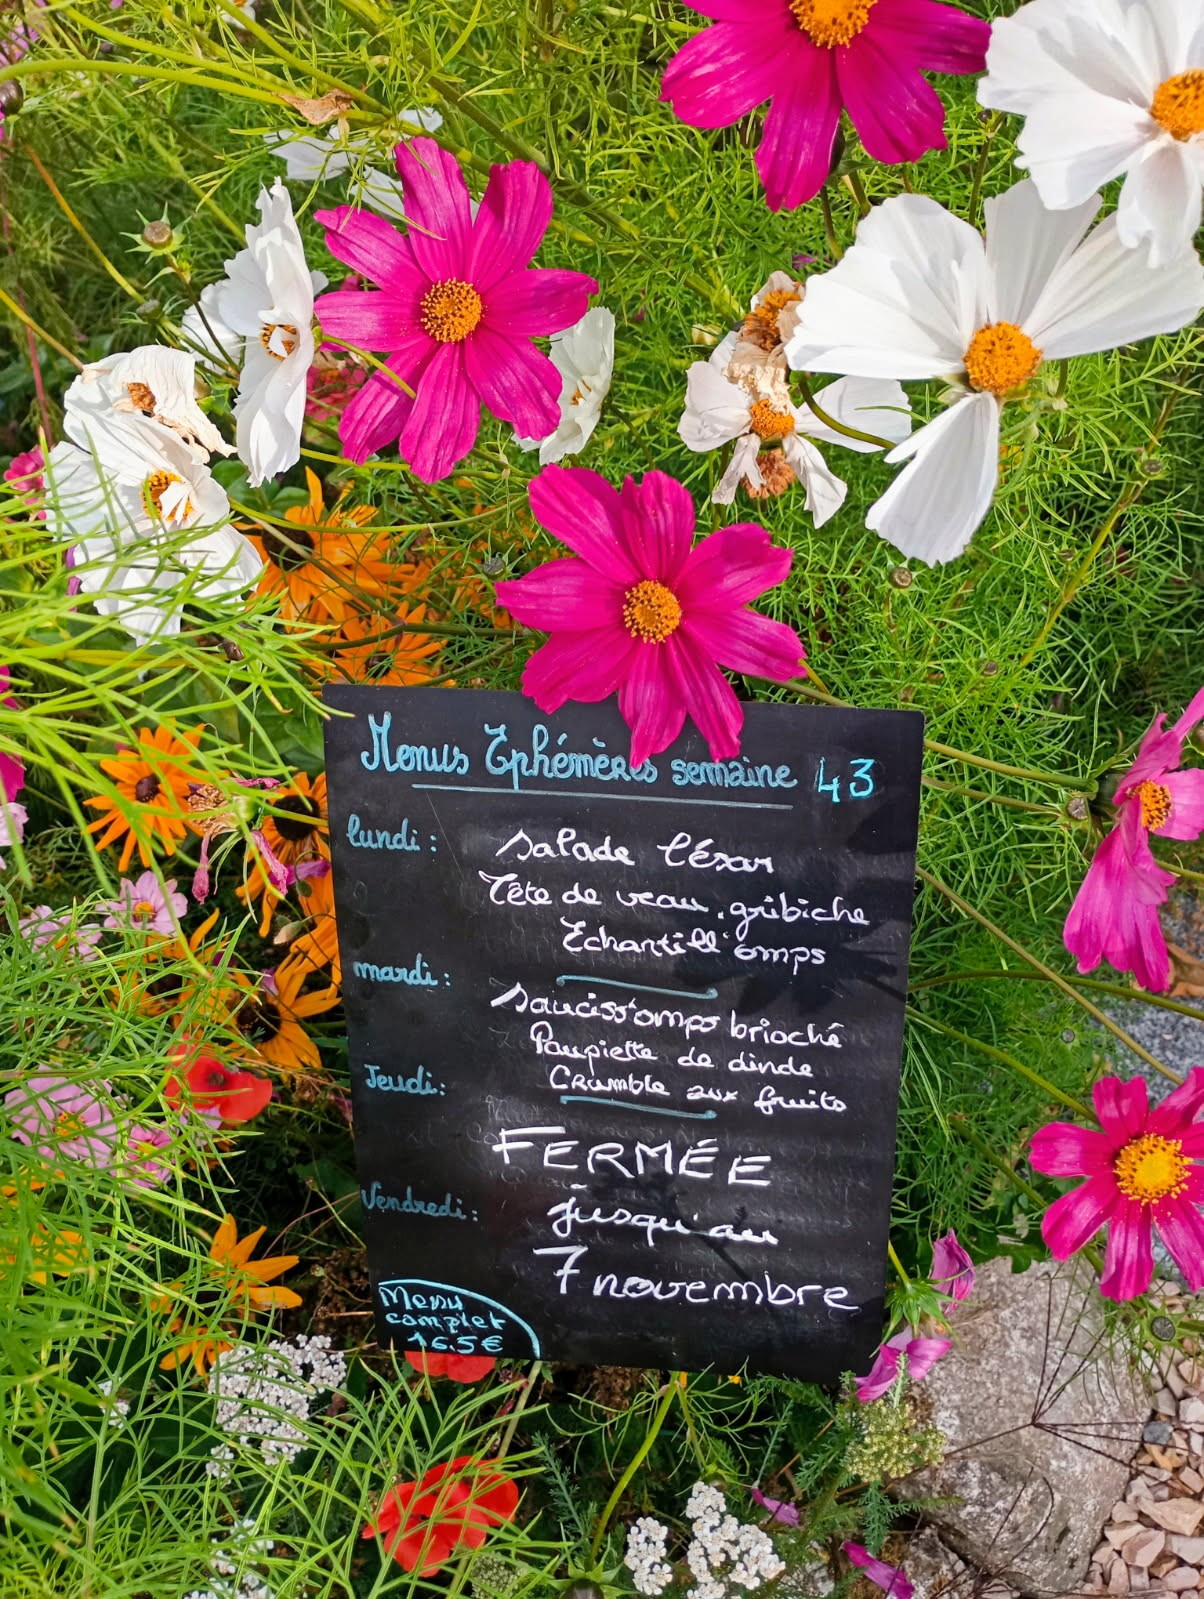 Menus Ephémères semaine 43
lundi : Salade César
Tête de veau, gribiche
Echantill'omps
mardi : Sauciss'omps brioché
Paupiette de dinde
Jeudi: Crumble aux fruits
FERMÉE
Vendredi: jusqu'au
7 novembre
Menu
complet
16.5€